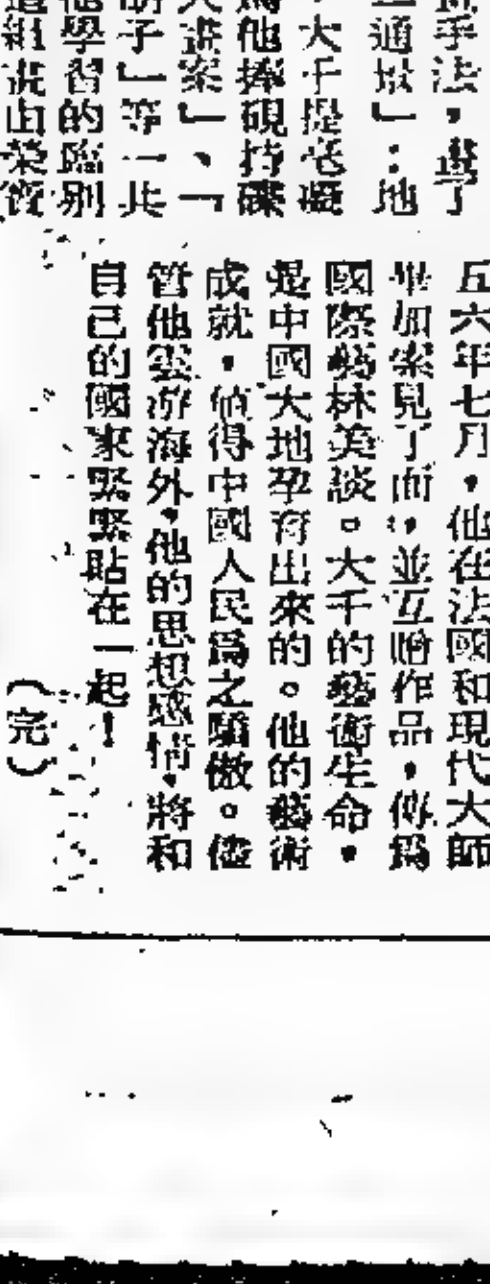 手法，畫了
通景」：地
大千提毫凝
爲他捧硯持碟
畫案」、「
胡子」等一共
他學習的臨別
這組畫由榮寶
五六年七月，他在法國和現代大師
畢加索見了面，並互贈作品，傳爲
國際藝林美談。大千的藝術生命，
是中國大地孕育出來的。他的藝術
成就，値得中國人民爲之驕傲。儘
管他雲游海外，他的思想感情，將和
自己的國家緊緊貼在一起！
（完）